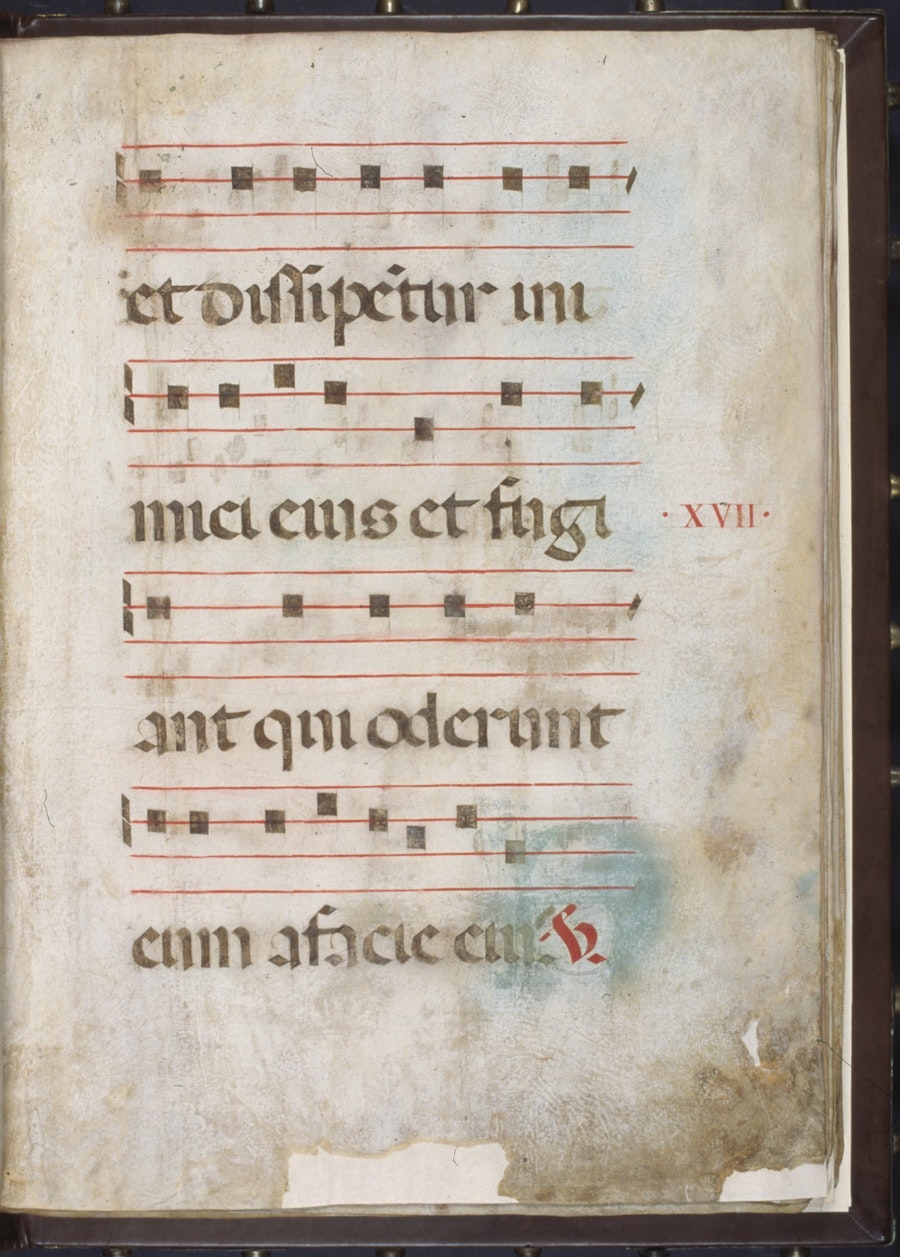 et dissipētur ini
mici eius et fugi
· XVII ·
ant qui oderunt
eum afacie eius. V.